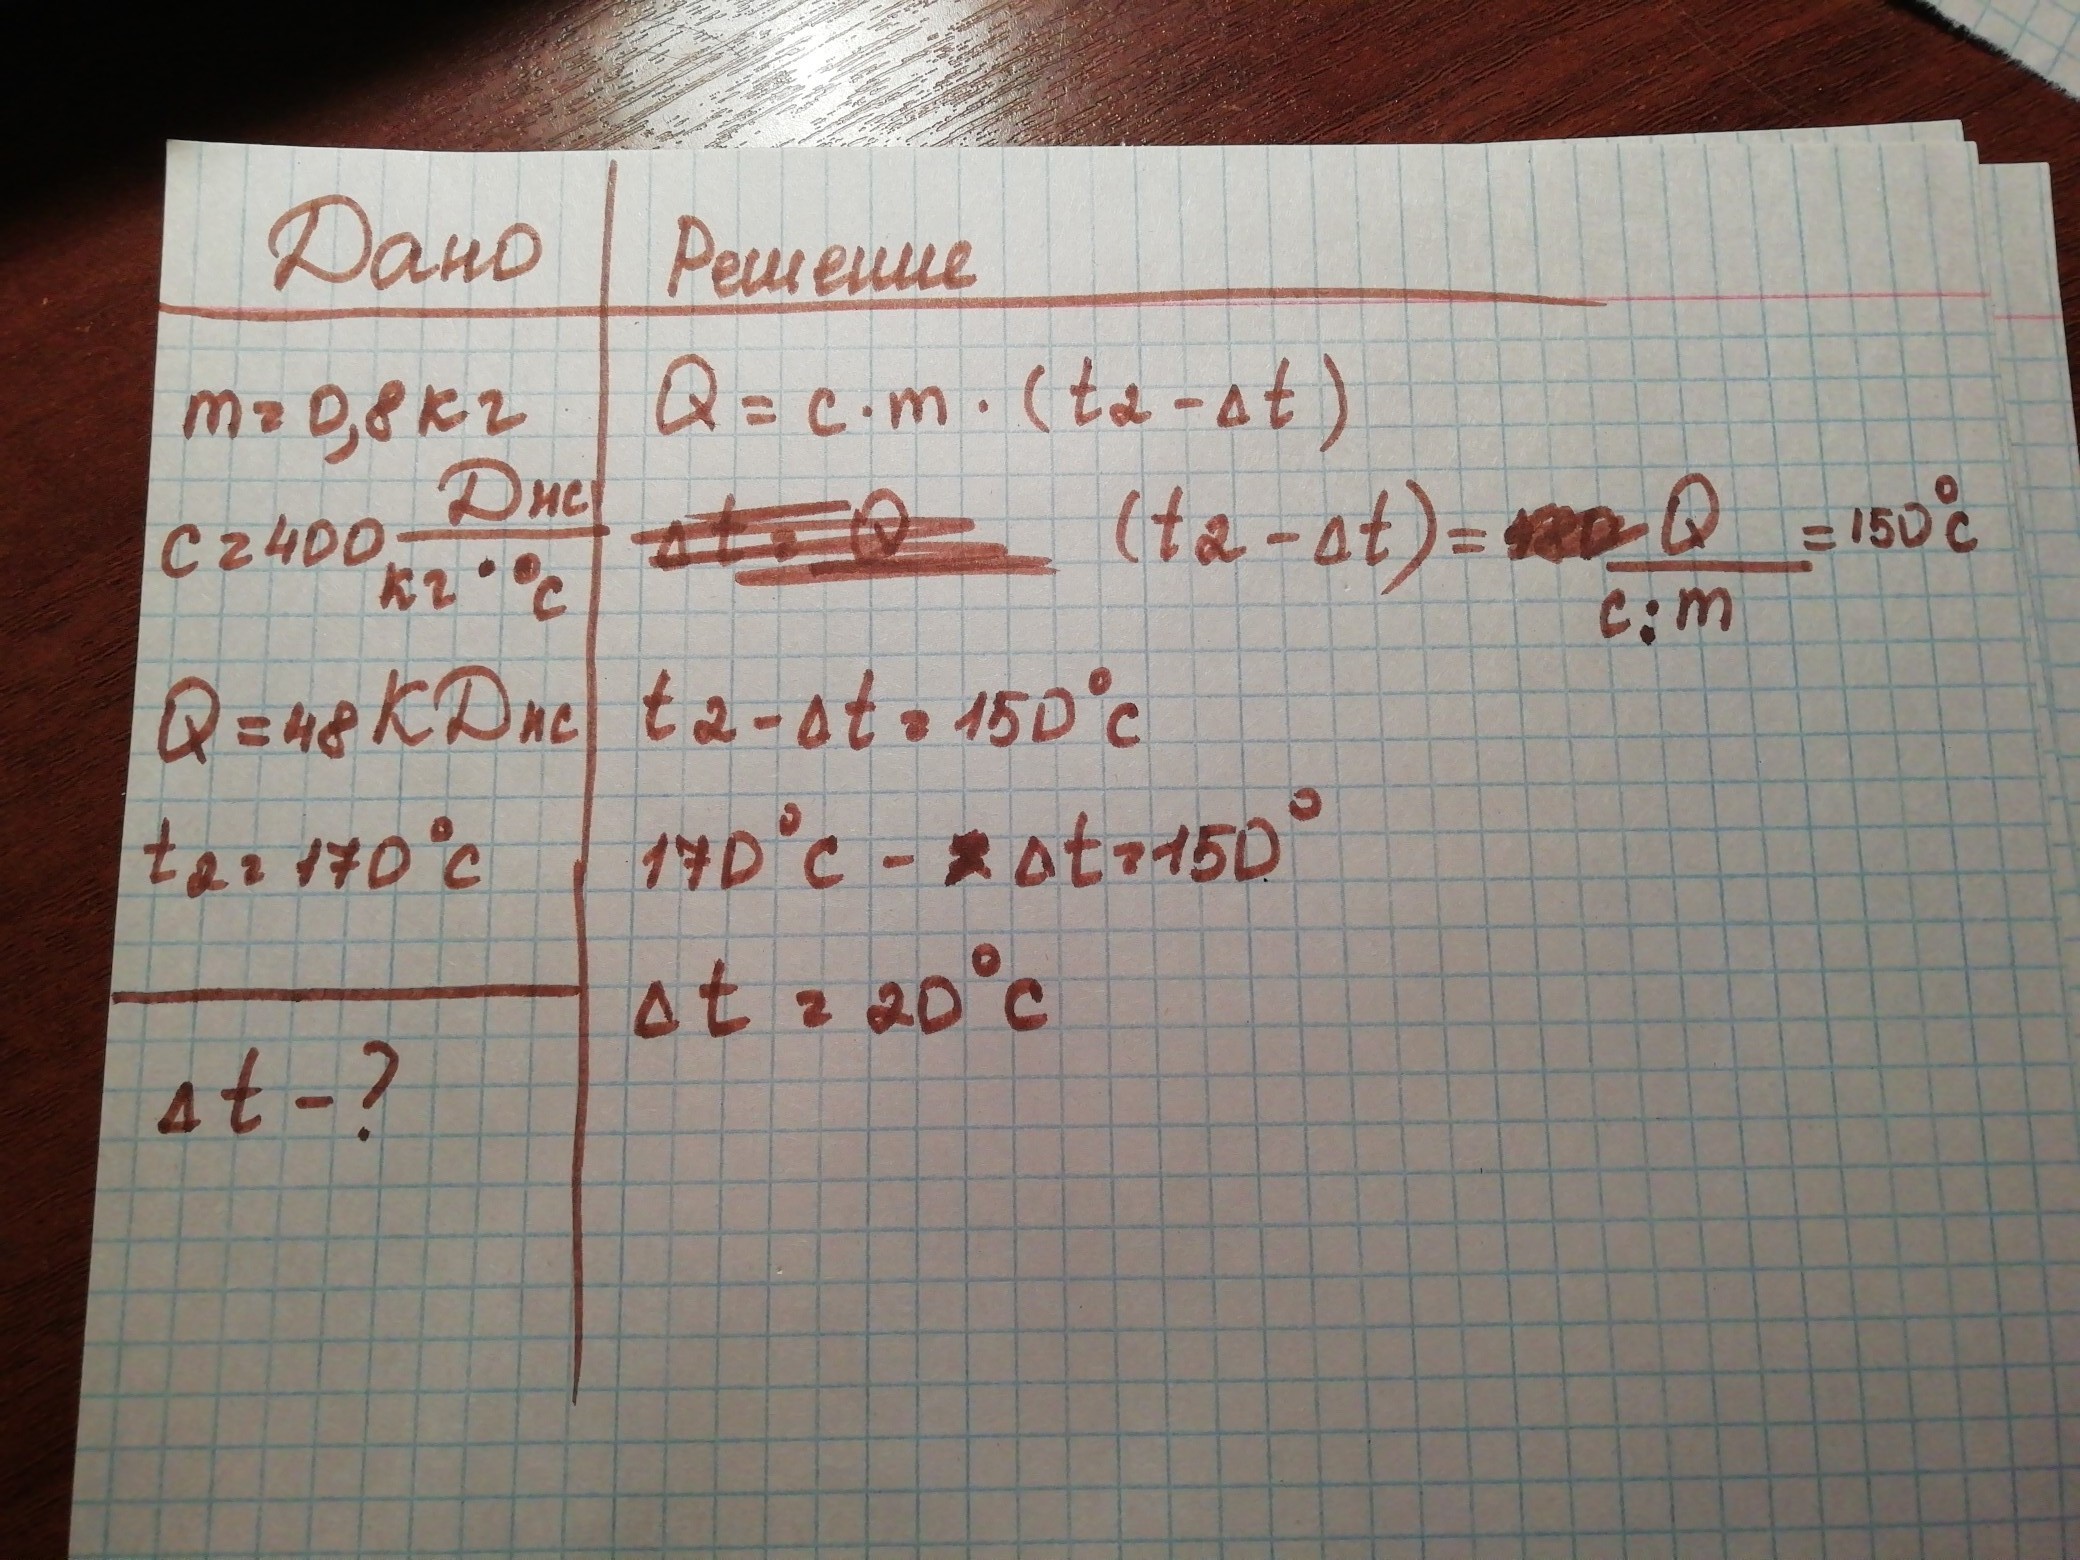 Дано
m = 0,8 кг
c = 400 Дж / кг · °C
Q = 48 КДж
t2 = 170°C
Δt - ?
Решение
Q = c · m · (t2 - Δt)
Δt = Q
(t2 - Δt) = Q / c : m = 150°C
t2 - Δt = 150°C
170°C - Δt = 150°
Δt = 20°C